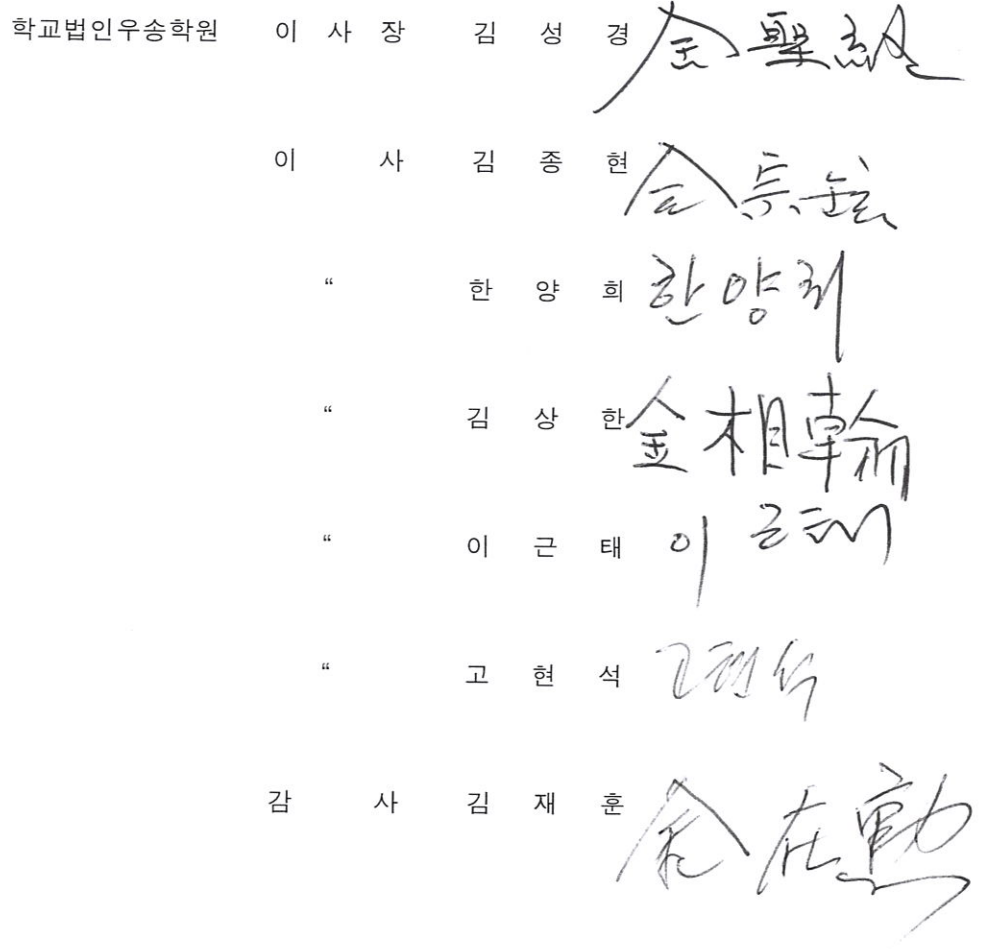 학교법인우송학원 이 사 장 김 성 경 金聖經
이 사 김 종 현 金
“ 한 양 희 한양희
“ 김 상 한 金相翰
“ 이 근 태 이근태
“ 고 현 석 고현석
감 사 김 재 훈 金在勳